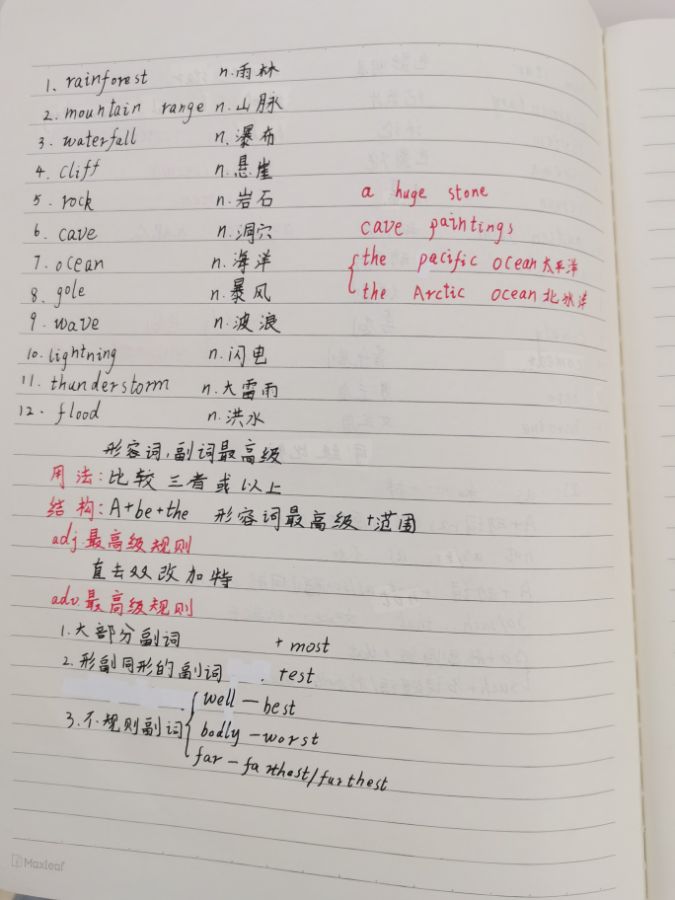 1. rainforest n.雨林
2. mountain range n.山脉
3. waterfall n.瀑布
4. cliff n.悬崖
5. rock n.岩石 a huge stone
6. cave n.洞穴 cave paintings
7. ocean n.海洋 the pacific ocean太平洋
8. gole n.暴风 the Arctic ocean北冰洋
9. wave n.波浪
10. lightning n.闪电
11. thunderstorm n.大雷雨
12. flood n.洪水
形容词,副词最高级
用法:比较三者或以上
结构:A+be+the 形容词最高级+范围
adj最高级规则
直去双改加特
adv最高级规则
1.大部分副词 + most
2.形副同形的副词 . +est
3.不规则副词 well—best
badly—worst
far—farthest/furthest
Maxleaf